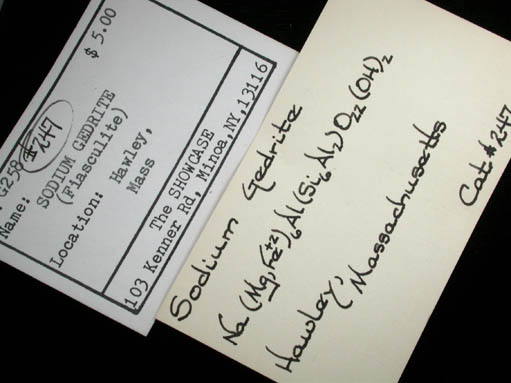 G258 #247 $ 5.00
Name:
SODIUM GEDRITE
(Fiasculite)
Location: Hawley,
Mass
The SHOWCASE
103 Kenner Rd, Minoa,NY,13116
Sodium Gedrite
Na (Mg,Fe+2)6Al(Si6Al2)O22(OH)2
Hawley, Massachusetts
Cat #247